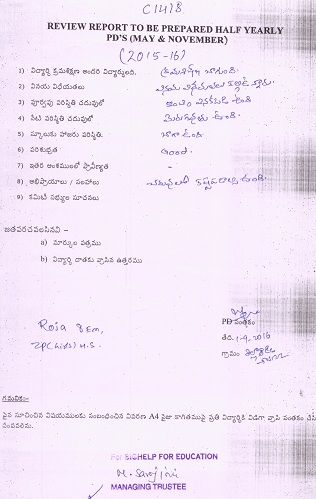 C1418
REVIEW REPORT TO BE PREPARED HALF YEARLY
PD'S (MAY & NOVEMBER)
(2015-16)
1) విద్యార్థి క్రమశిక్షణ అందరి విద్యార్థులంది. క్రమశిక్షణ బాగుంది.
2) వినయ విధేయతలు
3) పూర్వపు పరిస్థితి చదువులో
4) నేటి పరిస్థితి చదువులో మెరుగైనది ఉంది.
5) స్కూలుకు హాజరు పరిస్థితి. బాగా ఉంది.
6) పరిశుభ్రత : Good.
7) ఇతర అంశములలో ప్రావీణ్యత -
8) అభిప్రాయాలు / సలహాలు చదువులో కష్టపడాల్సి ఉంది.
9) కమిటీ సభ్యుల సూచనలు
జతపరచవలసినవి -
a) మార్కుల పత్రము
b) విద్యార్థి దాతకు వ్రాసిన ఉత్తరము
Roja 8 Em,
ZP(Girls) H.S.
PD సంతకం
తేది. 1-9-2016
గ్రామం
గమనిక:-
పైన సూచించిన విషయములకు సంబంధించిన వివరణ A4 సైజు కాగితముపై ప్రతి విద్యార్థికి విడిగా వ్రాసి సంతకం చేసి
పంపవలెను.
For BIGHELP FOR EDUCATION
M. Sarojini
MANAGING TRUSTEE